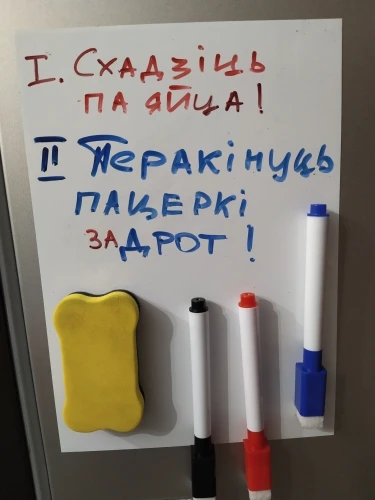 I. Схадзіць
па яйца!
II Перакінуць
пацеркі
за дрот!